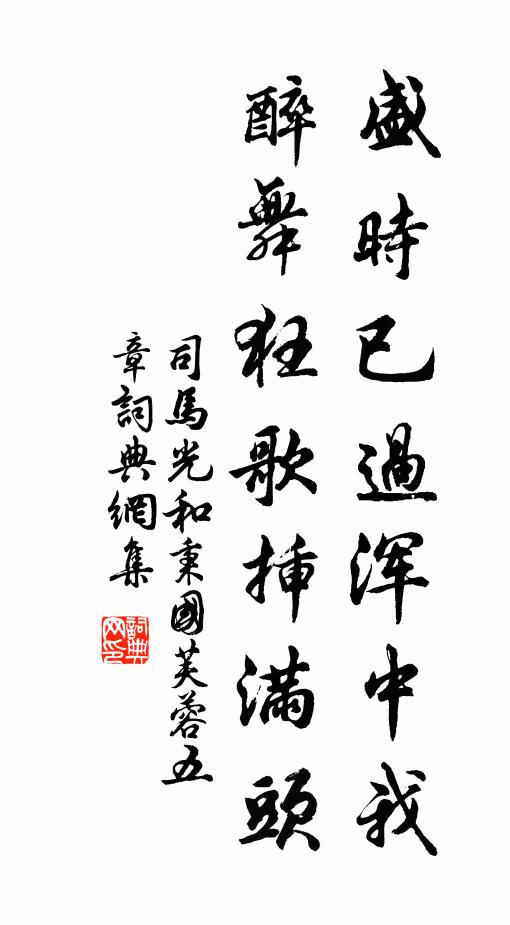 盛時已過浑中我
醉舞狂歌揷滿頭
司馬光和秉國芙蓉五
章詞典網集
詞典
网印